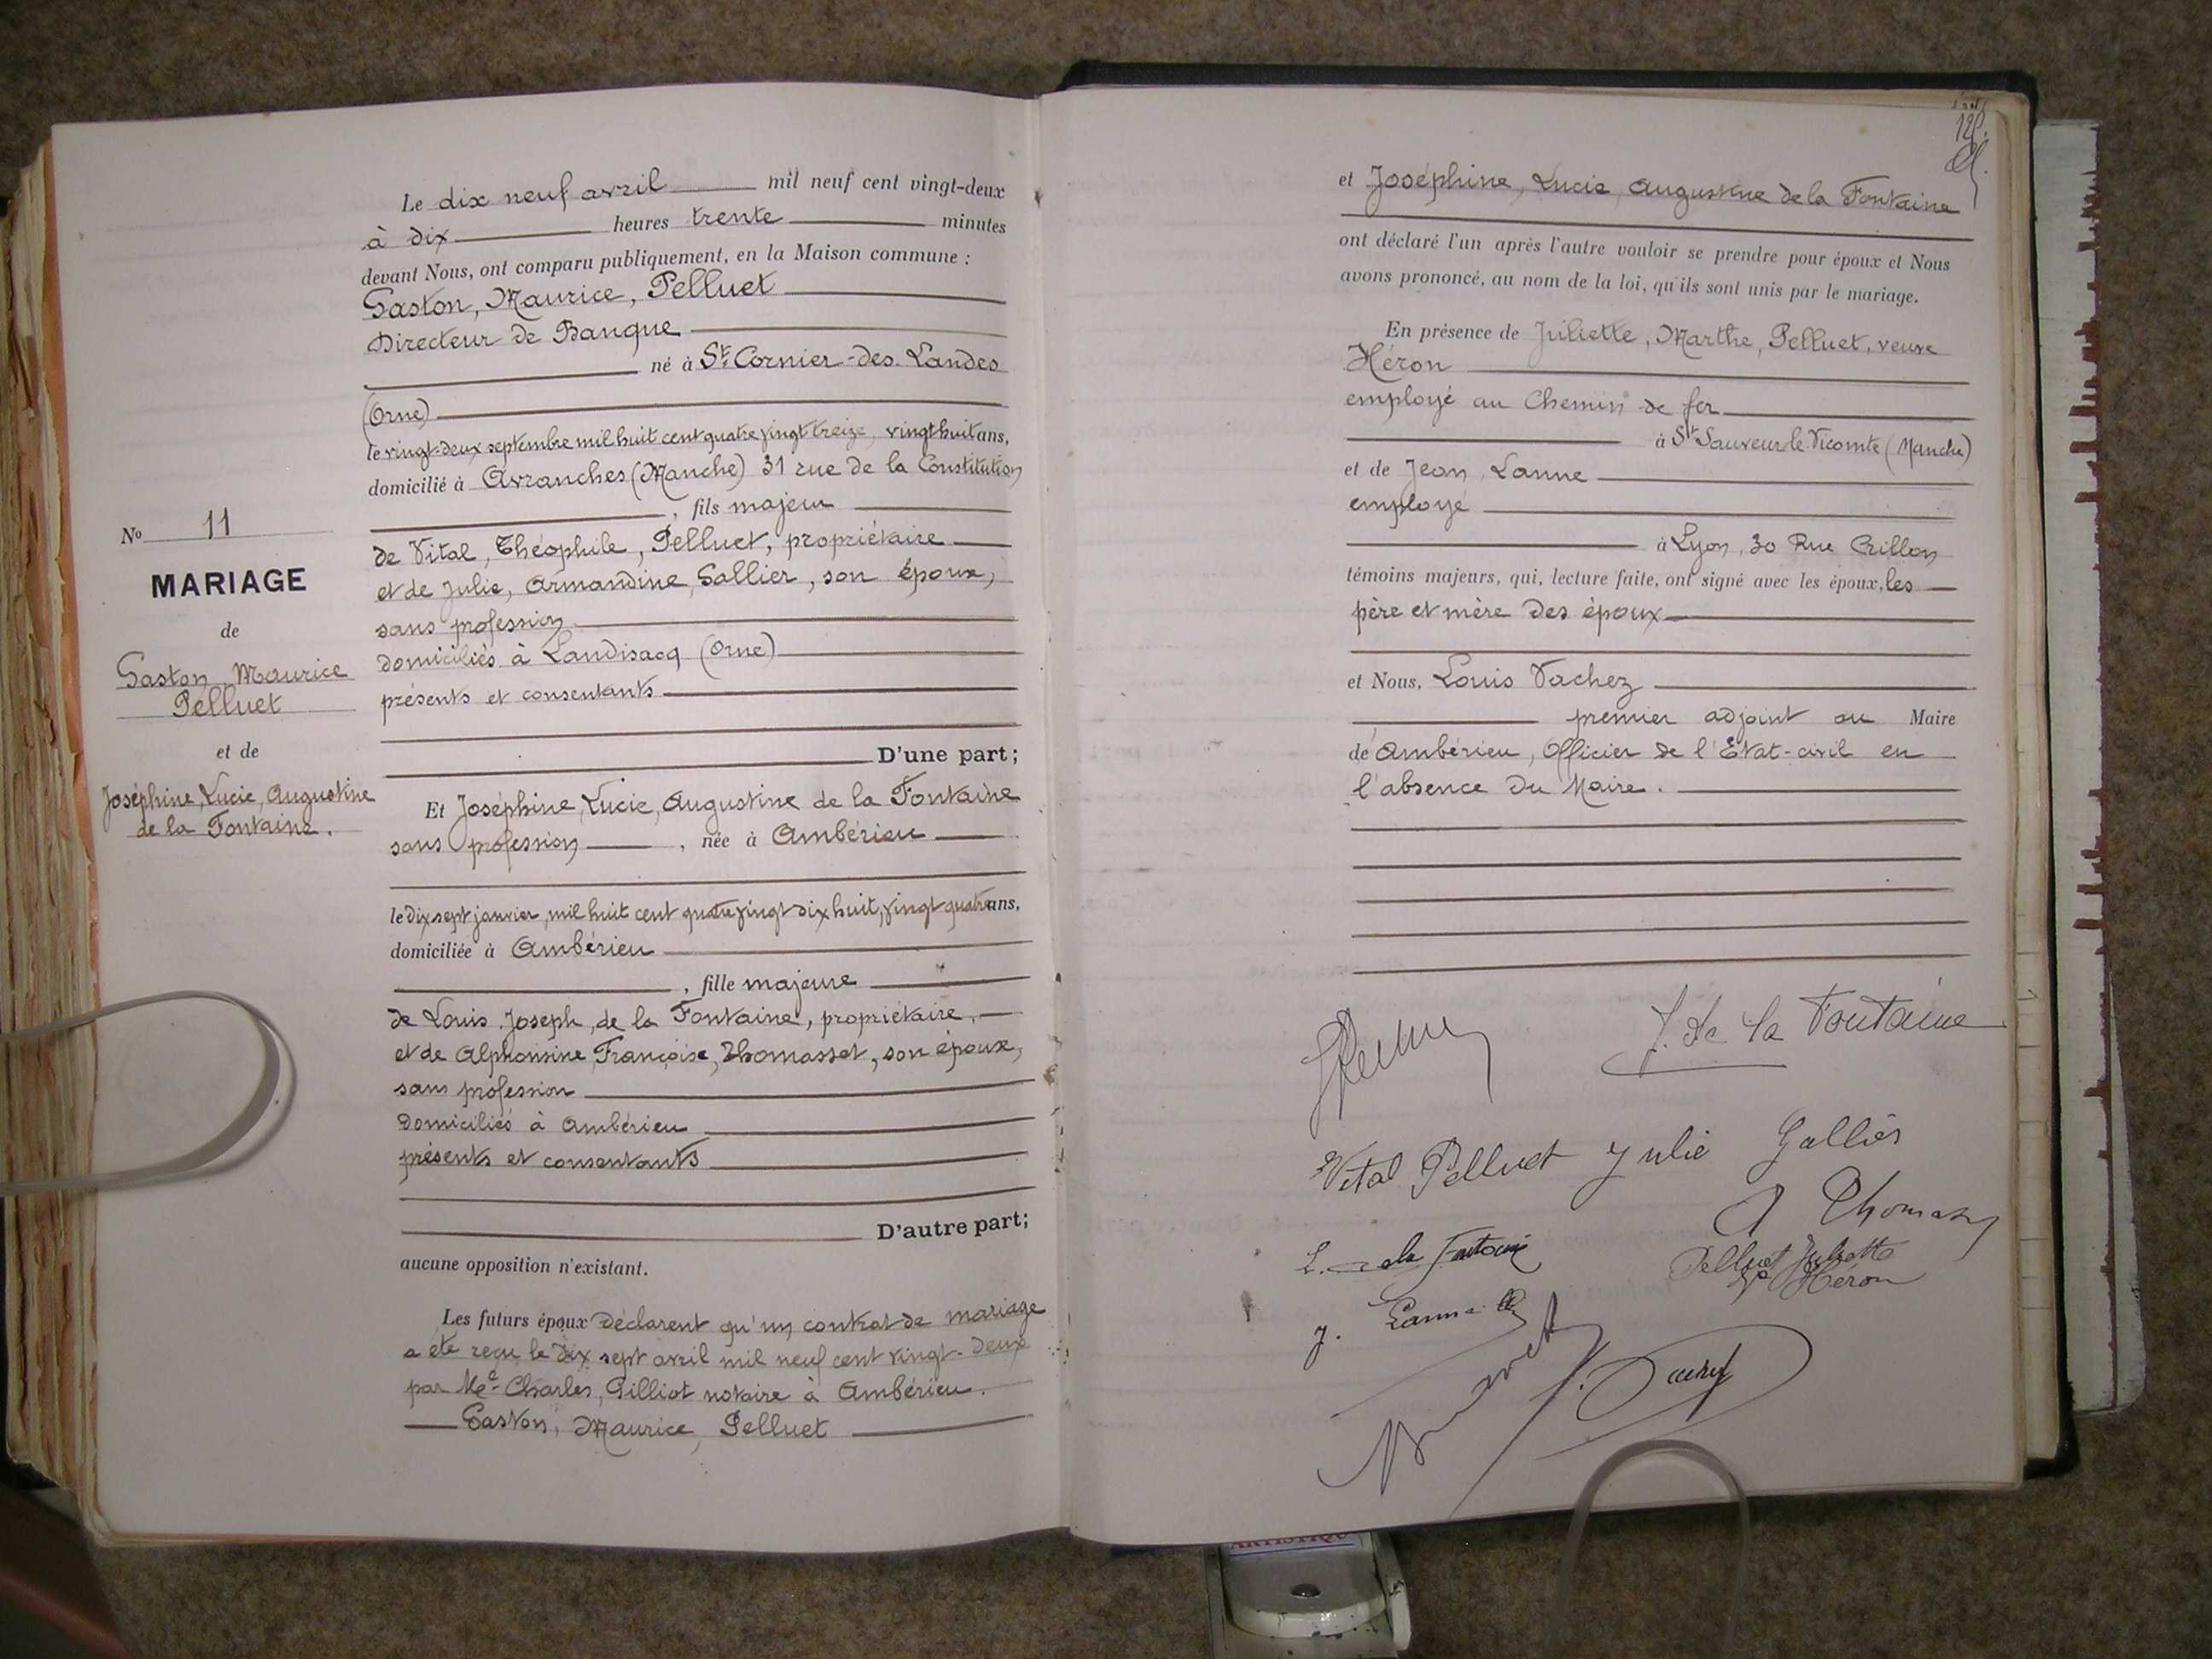 Le dix neuf avril mil neuf cent vingt-deux
à dix heures trente minutes
devant Nous, ont comparu publiquement, en la Maison commune :
Gaston, Maurice, Pelluet
Directeur de Banque
né à St Cornier-des-Landes
(Orne)
le vingt-deux septembre mil huit cent quatre vingt treize, vingt huit ans,
domicilié à Avranches (Manche) 31 rue de la Constitution
, fils majeur
de Vital, Théophile, Pelluet, propriétaire
et de Julie, Armandine, Gallier, son épouse,
sans profession
domiciliés à Landisacq (Orne)
présents et consentants
D'une part;
No 11
MARIAGE
de
Gaston, Maurice
Pelluet
et de
Joséphine, Lucie, Augustine
de la Fontaine.
Et Joséphine, Lucie, Augustine de la Fontaine
sans profession, née à Ambérieu
le dix sept janvier, mil huit cent quatre vingt dix huit, vingt quatre ans,
domiciliée à Ambérieu
, fille majeure
de Louis, Joseph, de la Fontaine, propriétaire,
et de Alphonsine, Françoise, Thomasset, son épouse,
sans profession
domiciliés à Ambérieu
présents et consentants
D'autre part;
aucune opposition n'existant.
Les futurs époux déclarent qu'un contrat de mariage
a été reçu le dix sept avril mil neuf cent vingt-deux
par Me Charles, Gilliot notaire à Ambérieu.
Gaston, Maurice, Pelluet
et Joséphine, Lucie, Augustine de la Fontaine
ont déclaré l'un après l'autre vouloir se prendre pour époux et Nous
avons prononcé, au nom de la loi, qu'ils sont unis par le mariage.
En présence de Juliette, Marthe, Pelluet, veuve
Héron
employé au Chemin de fer
à St Sauveur le Vicomte (Manche)
et de Jean, Lanne
employé
à Lyon, 30 Rue Crillon
témoins majeurs, qui, lecture faite, ont signé avec les époux, les
père et mère des époux
et Nous, Louis Vachez
premier adjoint au Maire
de Ambérieu, Officier de l'Etat-civil en
l'absence du Maire.
J. de la Fontaine
Vital Pelluet Julie Gallier
L. de la Fontaine
Pelluet Juliette
Vve Héron
J. Lanne